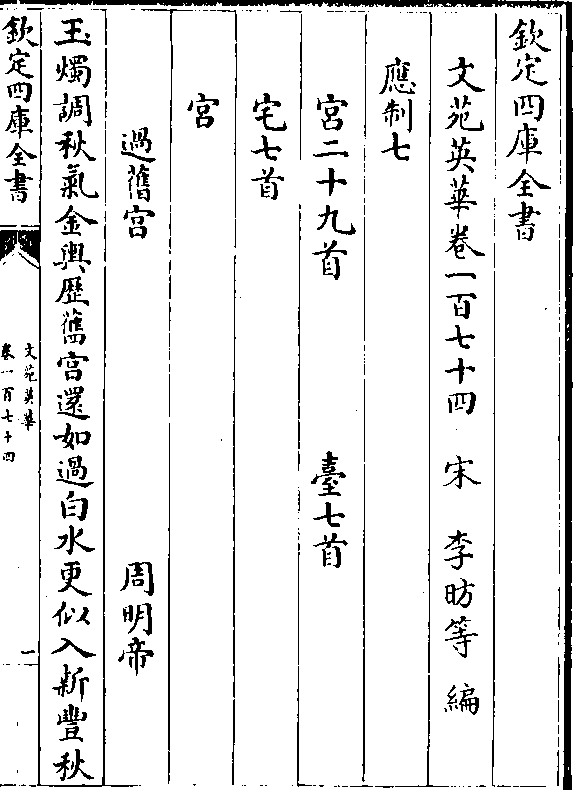 欽定四庫全書
文苑英華卷一百七十四　宋　李昉等　編
應制七
宮二十九首　臺七首
宅七首
宮
過舊宮　周明帝
玉燭調秋氣金輿歷舊宮還如過白水更似入新豐秋
欽定四庫全書
文苑英華
卷一百七十四
一